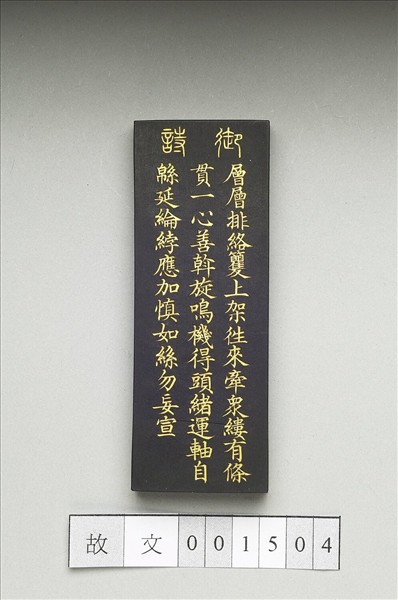 御詩
層層排絡籰上架徃來牽衆縷有條
貫一心善斡旋鳴機得頭緒運軸自
緜延綸綍應加慎如絲勿妄宣
故文001504